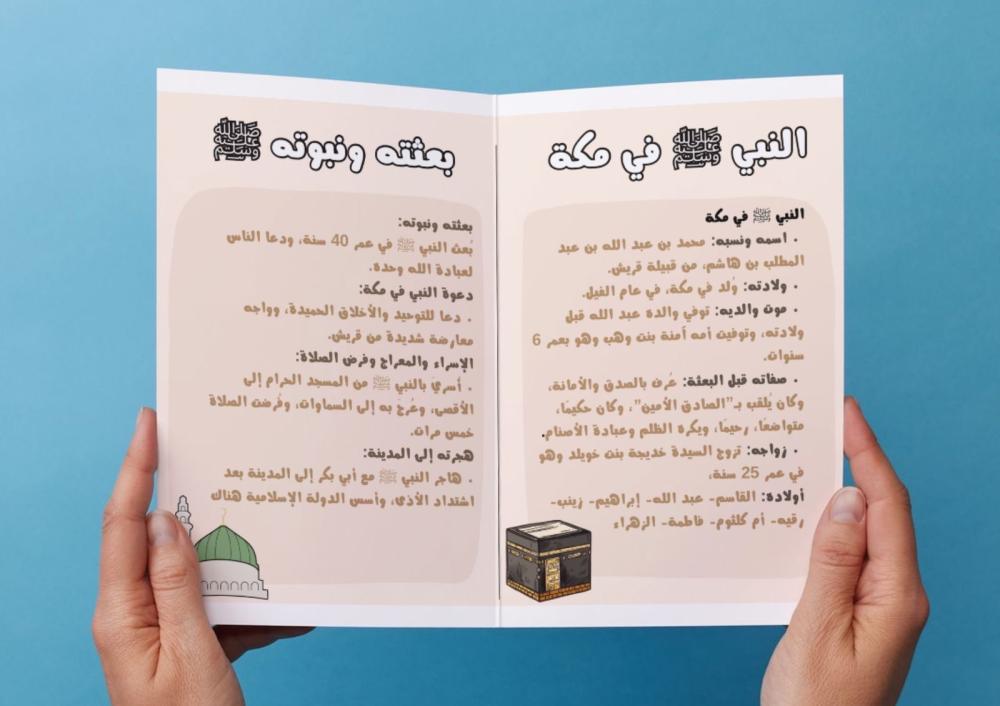 النبي ﷺ في مكة
النبي ﷺ في مكة
• اسمه ونسبه: محمد بن عبد الله بن عبد
المطلب بن هاشم، من قبيلة قريش.
• ولادته: وُلد في مكة، في عام الفيل.
• موت والديه: توفي والدة عبد الله قبل
ولادته، وتوفيت أمه آمنة بنت وهب وهو بعمر 6
سنوات.
• صفاته قبل البعثة: عُرف بالصدق والأمانة،
وكان يُلقب بـ"الصادق الأمين"، وكان حكيمًا،
متواضعًا، رحيمًا، ويكره الظلم وعبادة الأصنام.
• زواجه: تزوج السيدة خديجة بنت خويلد وهو
في عمر 25 سنة،
أولادة: القاسم- عبد الله- إبراهيم- زينب-
رقيه- أم كلثوم- فاطمة- الزهراء
بعثته ونبوته ﷺ
بعثته ونبوته:
بُعث النبي ﷺ في عمر 40 سنة، ودعا الناس
لعبادة الله وحدة.
دعوة النبي في مكة:
• دعا للتوحيد والأخلاق الحميدة، وواجه
معارضة شديدة من قريش.
الإسراء والمعراج وفرض الصلاة:
• أُسريَ بالنبي ﷺ من المسجد الحرام إلى
الأقصى، وعُرجَ به إلى السماوات، وفُرضت الصلاة
خمس مرات.
هجرته إلى المدينة:
• هاجر النبي ﷺ مع أبي بكر إلى المدينة بعد
اشتداد الأذى، وأسس الدولة الإسلامية هناك